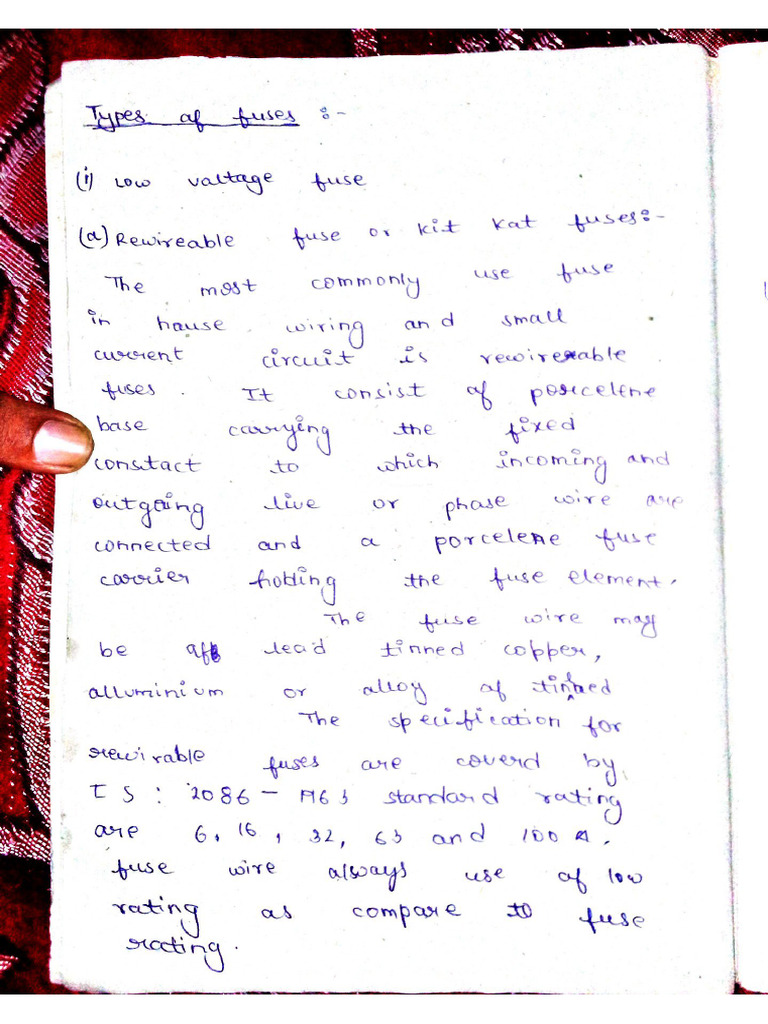 Types of fuses :-
(i) Low voltage fuse
(a) Rewireable fuse or kit kat fuses:-
The most commonly use fuse
in house wiring and small
current circuit is rewireable
fuses. It consist of porcelene
base carrying the fixed
constact to which incoming and
outgoing live or phase wire are
connected and a porcelene fuse
carrier holding the fuse element.
The fuse wire may
be of lead tinned copper,
alluminium or alloy of tinned
The specification for
rewirable fuses are coverd by
IS : 2086 - 1963 standard rating
are 6, 16, 32, 63 and 100 A.
fuse wire always use of low
rating as compare to fuse
rating.